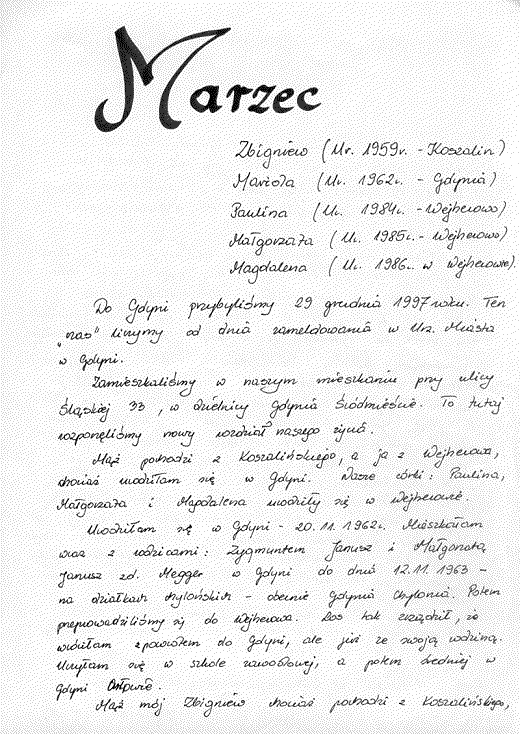 Marzec
Zbigniew (Ur. 1959r. - Koszalin)
Mariola (Ur. 1962r. - Gdynia)
Paulina (Ur. 1984r. - Wejherowo)
Małgorzata (Ur. 1985r. - Wejherowo)
Magdalena (Ur. 1986r. w Wejherowie).
Do Gdyni przybyliśmy 29 grudnia 1997 roku. Ten
"czas" liczymy od dnia zameldowania w Urz. Miasta
w Gdyni.
Zamieszkaliśmy w naszym mieszkaniu przy ulicy
Śląskiej 33, w dzielnicy Gdynia Śródmieście. To tutaj
rozpoczęliśmy nowy rozdział naszego życia.
Mąż pochodzi z Koszalińskiego, a ja z Wejherowa,
chociaż urodziłam się w Gdyni. Nasze córki: Paulina,
Małgorzata i Magdalena urodziły się w Wejherowie.
Urodziłam się w Gdyni - 20.11.1962r. Mieszkałam
wraz z rodzicami: Zygmuntem Janusz i Małgorzatą
Janusz zd. Megger w Gdyni do dnia 12.11.1963 -
na działkach chylońskich - obecnie Gdynia Chylonia. Potem
przeprowadziliśmy się do Wejherowa. Los tak zrządził, że
wróciłam z powrotem do Gdyni, ale już ze swoją rodziną.
Uczyłam się w szkole zawodowej, a potem średniej w
Gdyni Orłowie.
Mąż mój Zbigniew chociaż pochodzi z Koszalińskiego,